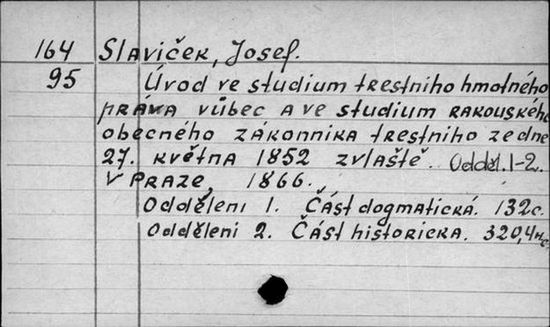 164 Slaviček, Josef.
95 Úvod ve studium trestniho hmotného
práva vůbec a ve studium rakouského
obecného zákonnika trestniho ze dne
27. května 1852 zvlaště. Odděl. 1-2.
V Praze, 1866.
Odděleni 1. Část dogmatická. 132c.
Odděleni 2. Část historicka. 320,4нс.